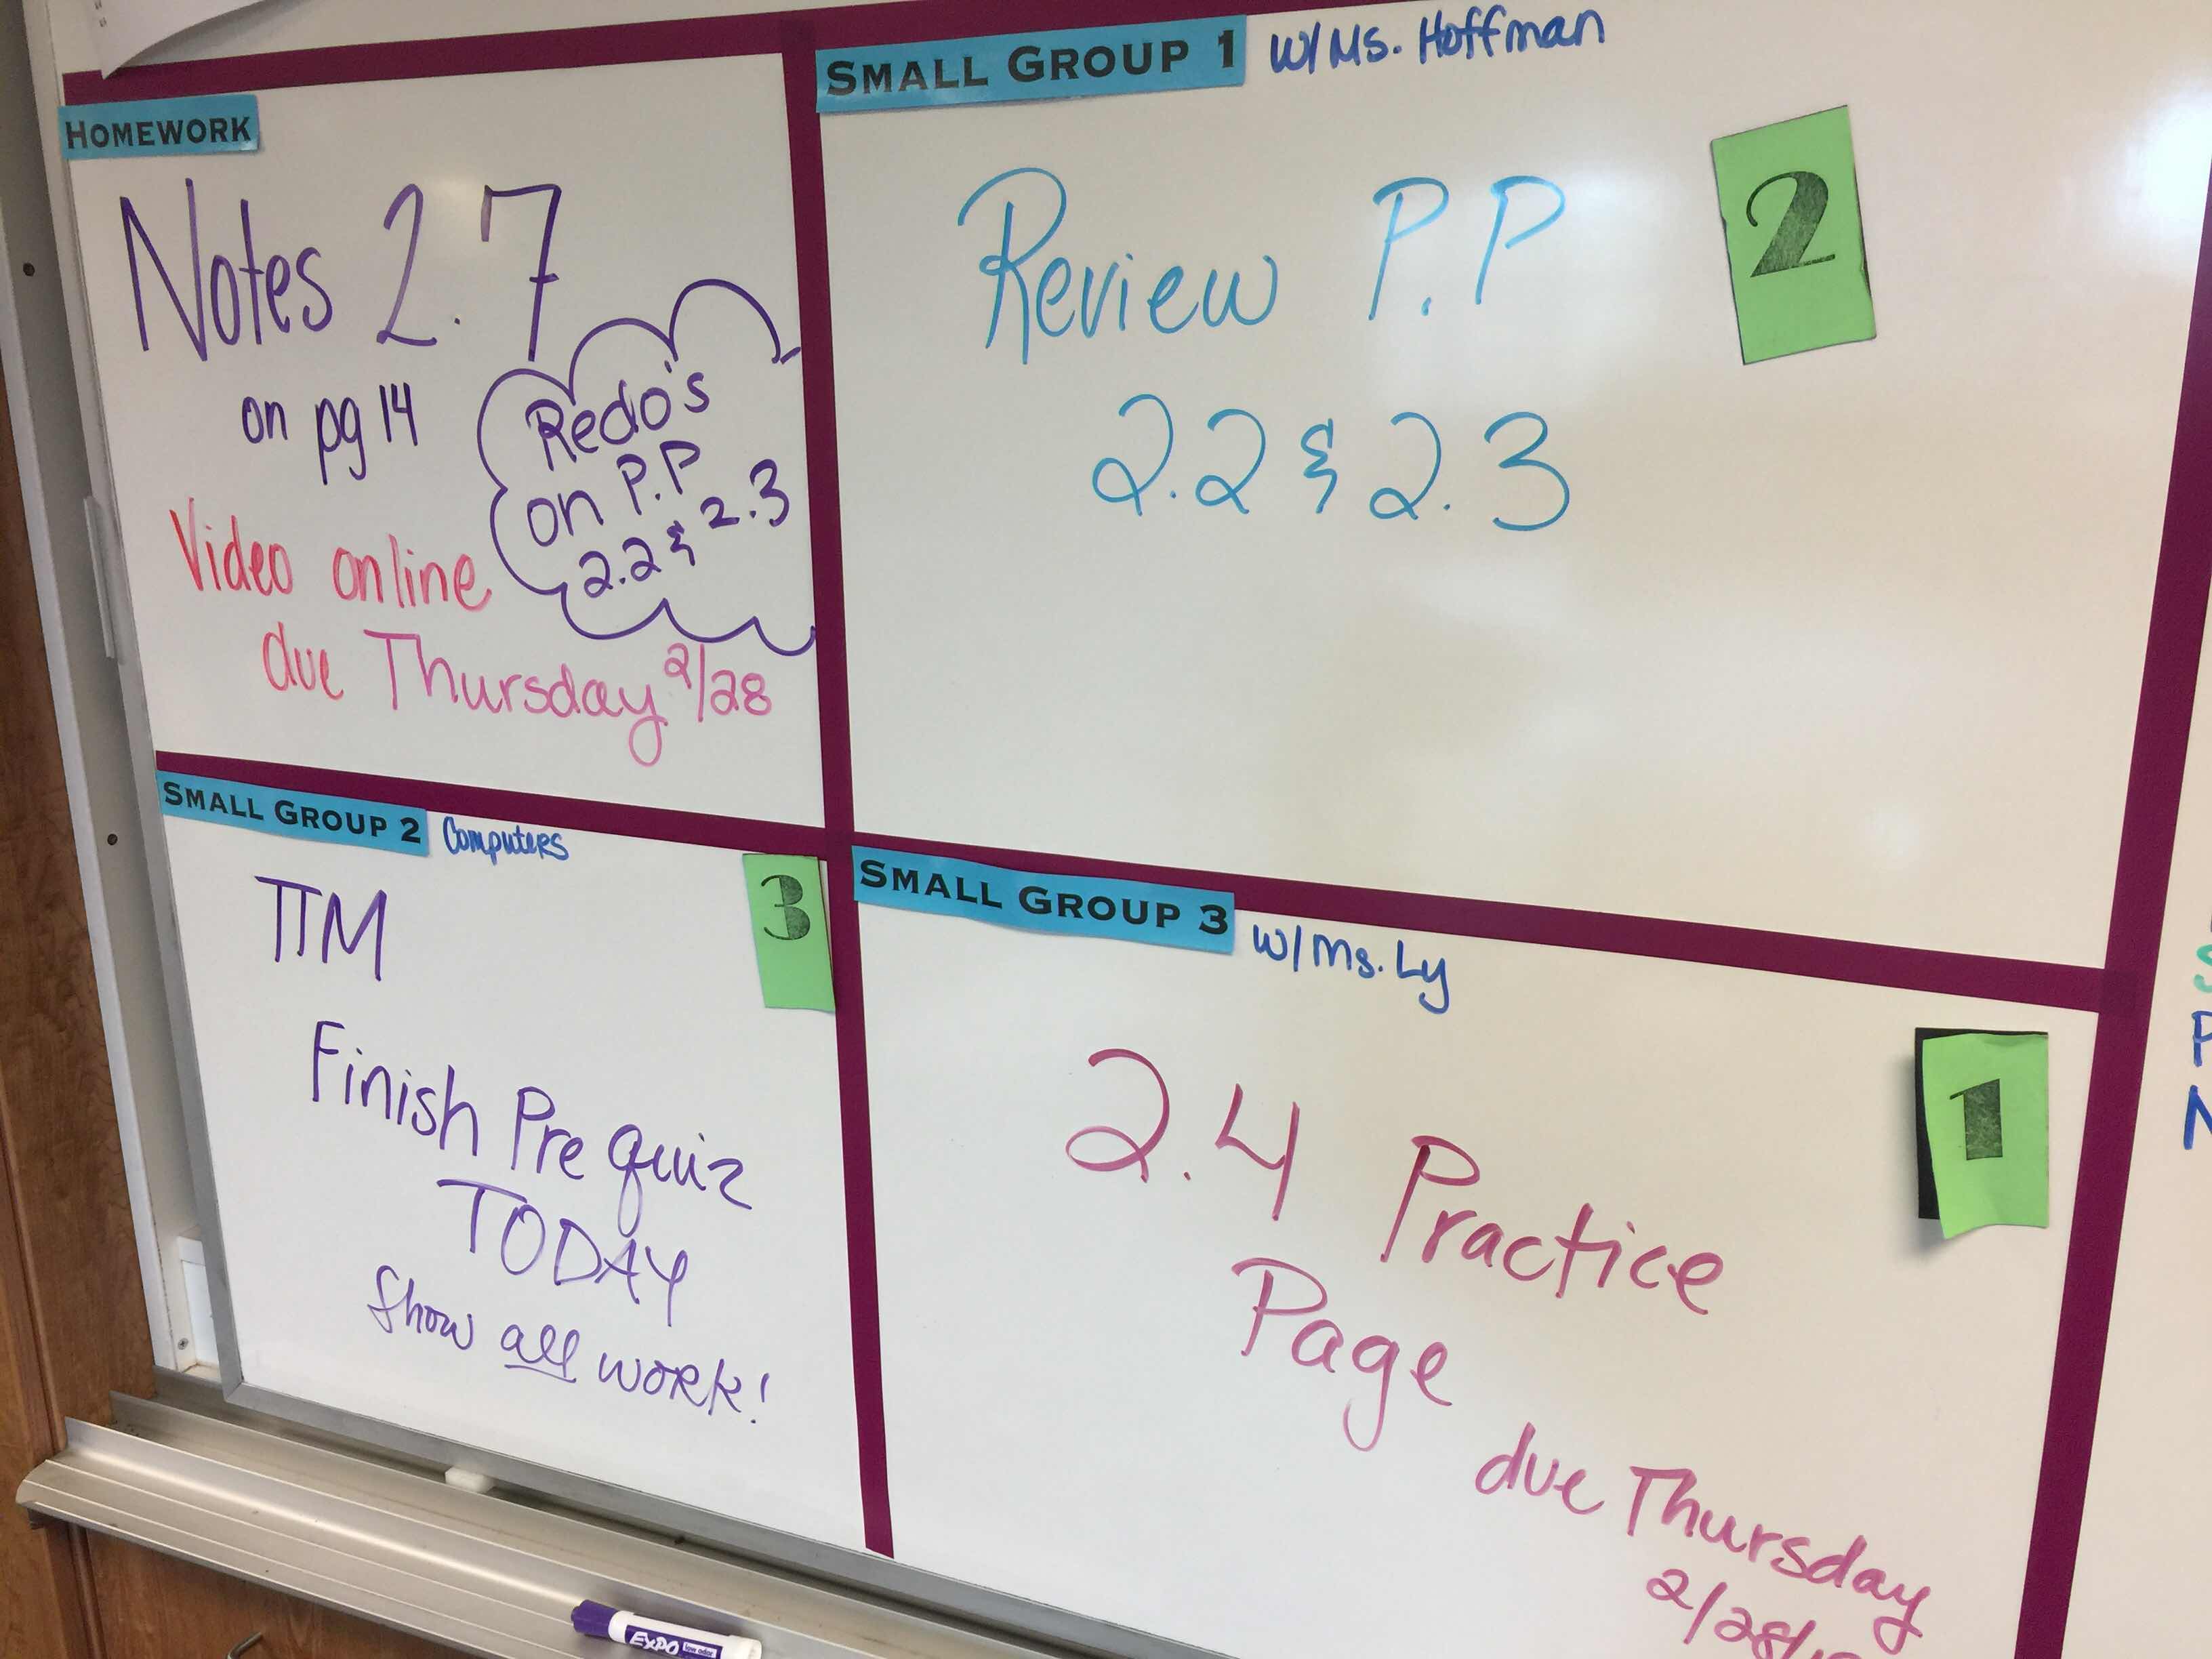 HOMEWORK
Notes 2.7
on pg 14
Redo's
on P.P
2.2 & 2.3
Video online
due Thursday 2/28
SMALL GROUP 1 w/Ms. Hoffman
2
Review P.P
2.2 & 2.3
SMALL GROUP 2 Computers
3
TTM
Finish Pre quiz
TODAY
Show all work!
SMALL GROUP 3 w/Ms. Ly
1
2.4 Practice
Page
due Thursday
2/28/
S
P
N
EXPO low odor